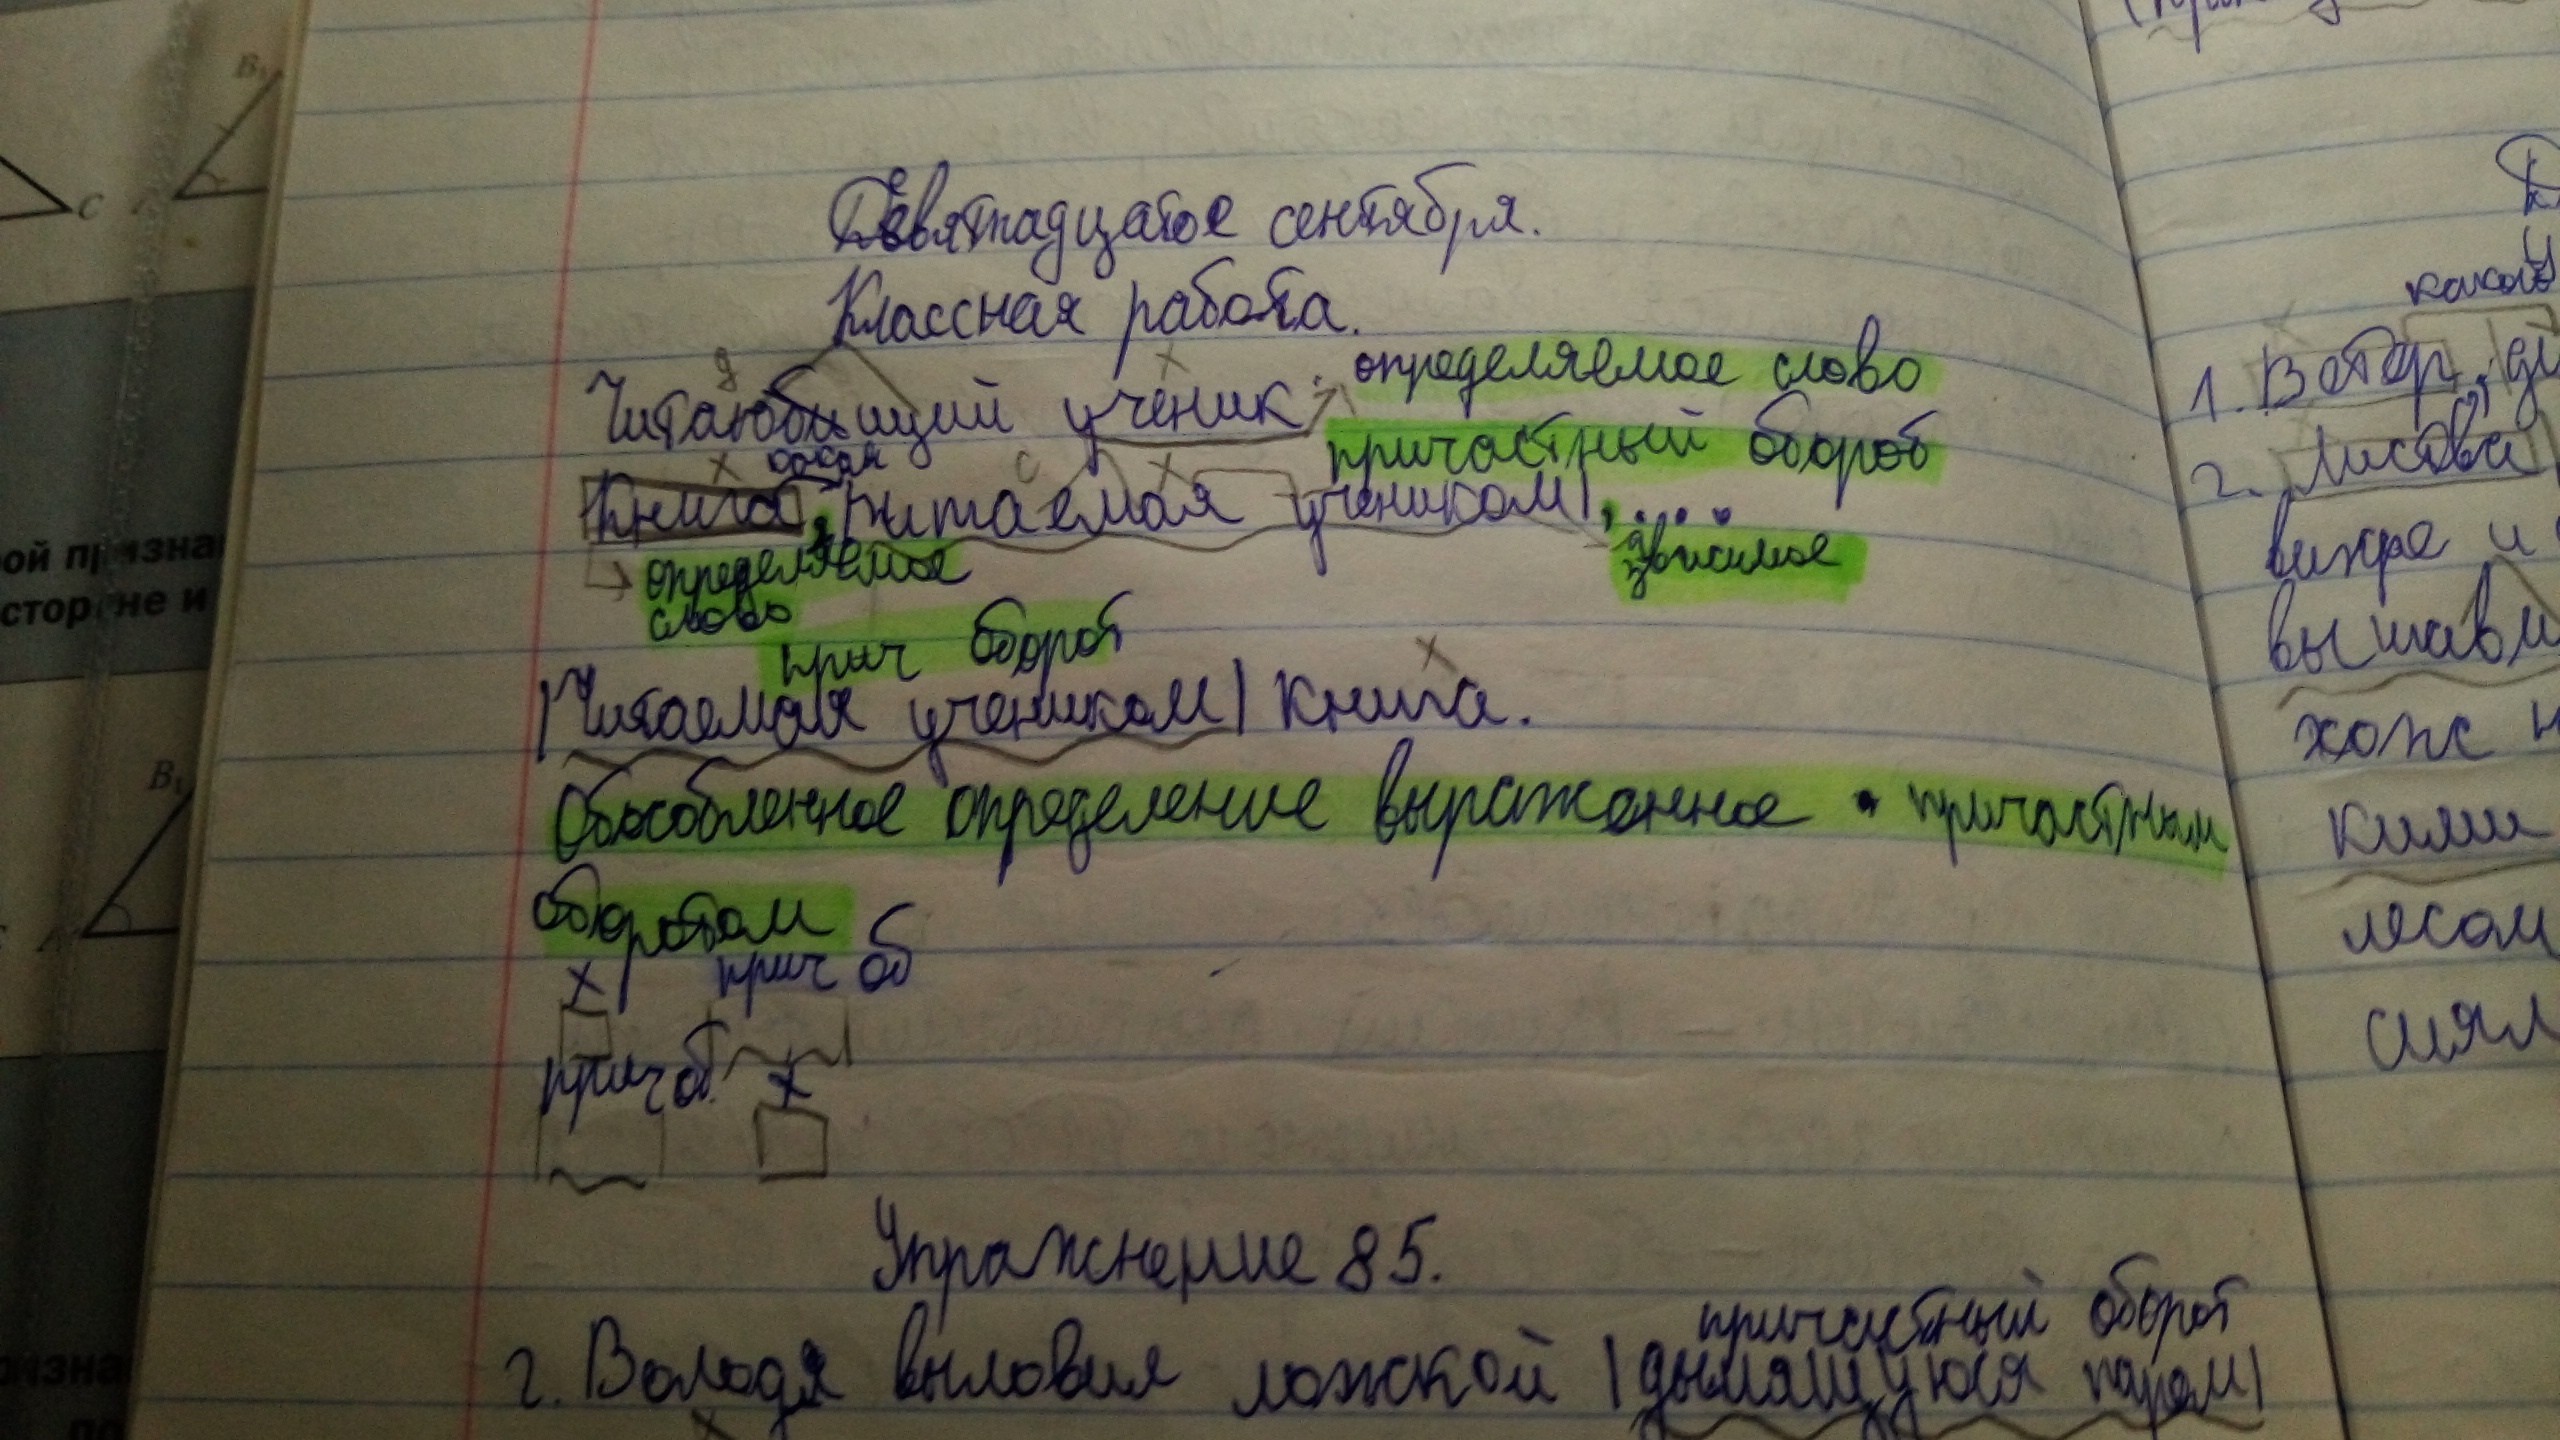 B₁
C
Девятнадцатое сентября.
Классная работа.
определяемое слово
д
х
ученик
причастный оборот
х какая с х
Книга, читаемая учеником,....
определяемое
слово
зависимое
прич оборот
х
|Читаемая учеником| книга.
Обособленное определение выраженное причастным
оборотом
х прич об
прич об. х
Упражнение 85.
причастный оборот
2. Володя выловил ложкой |дымящуюся паром|
х
ой призна
сторо не и
B₁
A
какой
1. Ветер,
2. Листва
вихре и
хожс
кими
лесом
сиял